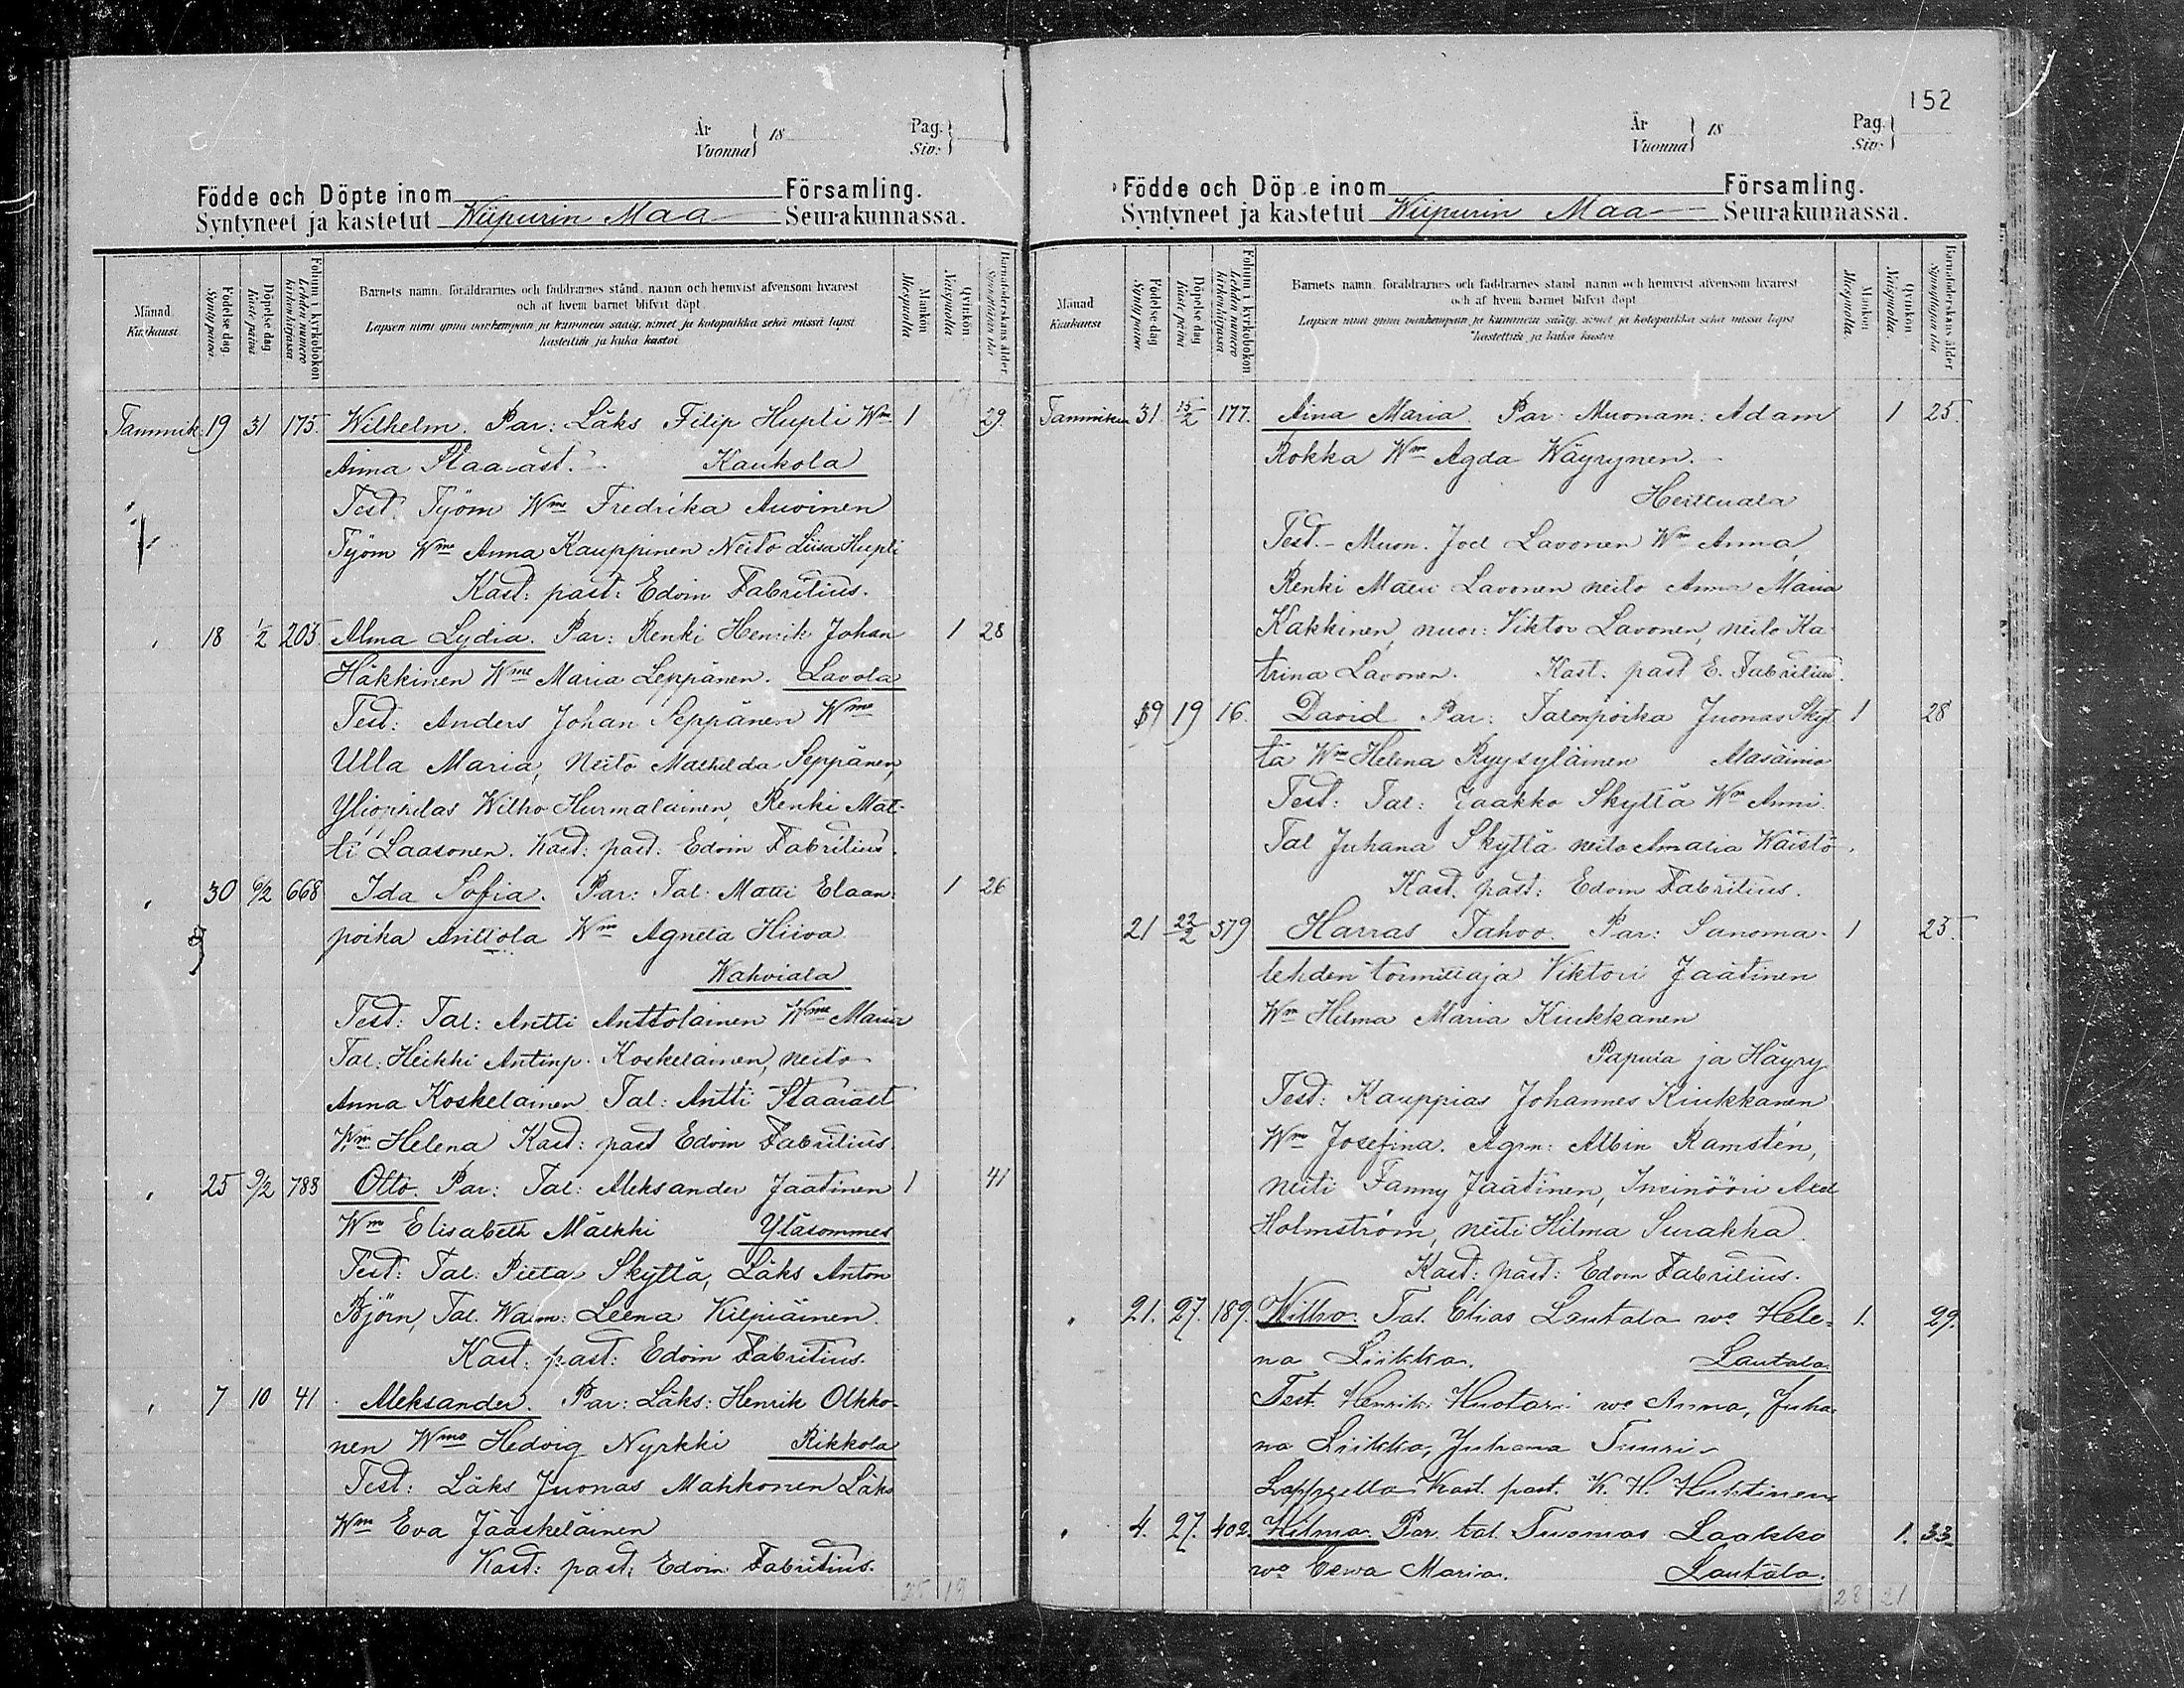 År
Vuonna } 18
Pag.
Siv. }
Födde och Döpte inom Församling.
Syntyneet ja kastetut Wiipurin Maa Seurakunnassa.
Månad
Kuukausi
Födelsedag
Syntypäivä
Döpelsedag
Kaste päivä
Folium i kyrkoboken
Lehden numero
kirkonkirjassa
Barnets namn, föräldrarnes och faddrarnes stånd, namn och hemvist äfvensom hvarest
och af hvem barnet blifvit döpt.
Lapsen nimi ynnä vanhempain ja kummein sääty, nimet ja kotopaikka sekä missä lapsi
kastettiin ja kuka kastoi
Mankön
Miespuolta
Qvinkön
Vaimopuolta
Barnaföderskans ålder
Synnyttäjän ikä
Tammik. 19 31 175. Wilhelm. Par: Läks Filip Hupli Wm 1 29.
Anna Staaräst. Kaukola
Test. Työm Wme Fredrika Auvinen
Työm Wme Anna Kauppinen Neito Liisa Hupli
Kast: past: Edvin Fabritius.
18 1/2 203. Alma Lydia. Par: Renki Henrik Johan 1 28
Häkkinen Wme Maria Leppänen. Lavola
Test: Anders Johan Seppänen Wme
Ulla Maria, Neito Mathilda Seppänen,
Ylioppilas Wilho Hurmalainen, Renki Mat-
ti Laasonen. Kast: past: Edvin Fabritius.
30 6/2 668 Ida Sofia. Par: Tal: Matti Elaan- 1 26
poika Anttola Wm Agneta Hiiva
Wahviala
Test: Tal: Antti Anttolainen Wme Maria
Tal: Heikki Antinp. Koskelainen, neito
Anna Koskelainen Tal: Antti Staaräst
Wm Helena Kast: past Edvin Fabritius.
25 9/2 788 Otto. Par: Tal: Aleksander Jäätinen 1 41
Wm Elisabeth Mälkki Yläsommee
Test: Tal: Pieta Skyttä, Läks Anton
Björn, Tal. Waim: Leena Kilpiäinen.
Kast: past: Edvin Fabritius.
7 10 41 Aleksander. Par: Läks: Henrik Olkko-
nen Wmo Hedvig Nyrkki Rikkola
Test: Läks Juonas Mahkonen Läks
Wm Eva Jääskeläinen
Kast: past: Edvin Fabritius.
25 19
152
År
Vuonna } 18
Pag.
Siv. }
Födde och Döpte inom Församling.
Syntyneet ja kastetut Wiipurin Maa Seurakunnassa.
Månad
Kuukausi
Födelsedag
Syntypäivä
Döpelsedag
Kaste päivä
Folium i kyrkoboken
Lehden numero
kirkonkirjassa
Barnets namn, föräldrarnes och faddrarnes stånd, namn och hemvist äfvensom hvarest
och af hvem barnet blifvit döpt
Lapsen nimi ynnä vanhempain ja kummein sääty, nimet ja kotopaikka sekä missä lapsi
kastettiin ja kuka kastoi
Mankön
Miespuolta
Qvinkön
Vaimopuolta
Barnaföderskans ålder
Synnyttäjän ikä
Tammikuu 31 15/2 177. Aina Maria. Par: Muonam: Adam 1 25.
Rokka Wm Agda Wäyrynen.
Herttuala
Test. Muon. Joel Lavonen Wm Anna,
Renki Matti Lavonen neito Anna Maria
Kakkinen, nuor: Viktor Lavonen, neito Ka
trina Lavonen. Kast: past E. Fabritius.
19 19 16. David Par: Talonpoika Juonas Skyt 1 28
tä Wm Helena Ryysyläinen Alasäiniö
Test: Tal: Jaakko Skyttä Wm Anni.
Tal Juhana Skyttä neito Amalia Käistö.
Kast. past: Edvin Fabritius.
21 22/2 579 Harras Tahvo. Par: Sanoma- 1 25.
lehden toimittaja Viktori Jäätinen
Wm Hilma Maria Kiukkanen
Papula ja Häyry
Test: Kauppias Johannes Kiukkanen
Wm Josefina. Agrn: Albin Ramstén,
neiti Fanny Jäätinen, Insinööri Axel
Holmström, neiti Hilma Surakka.
Kast: past: Edvin Fabritius.
21. 27. 189. Wilho. Tal. Elias Lautala wo Hele- 1. 29.
na Liikka. Lautala.
Test. Henrik Huotari wo Anna, Juha-
na Liikka, Juhana Tuuri
Kast. past. K. H. Huhtinen
4. 27. 402. Hilma. Par. tal. Tuomas Laakko 1. 33
wo Eewa Maria. Lautala.
28 21